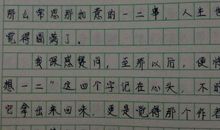 那么常思那如意的一二事,人生也
觉得圆满了。
我深感赞同,至那以后,便将
想一二”这四个字记在心头,不时
它拿出来回味,更是觉得那个作者